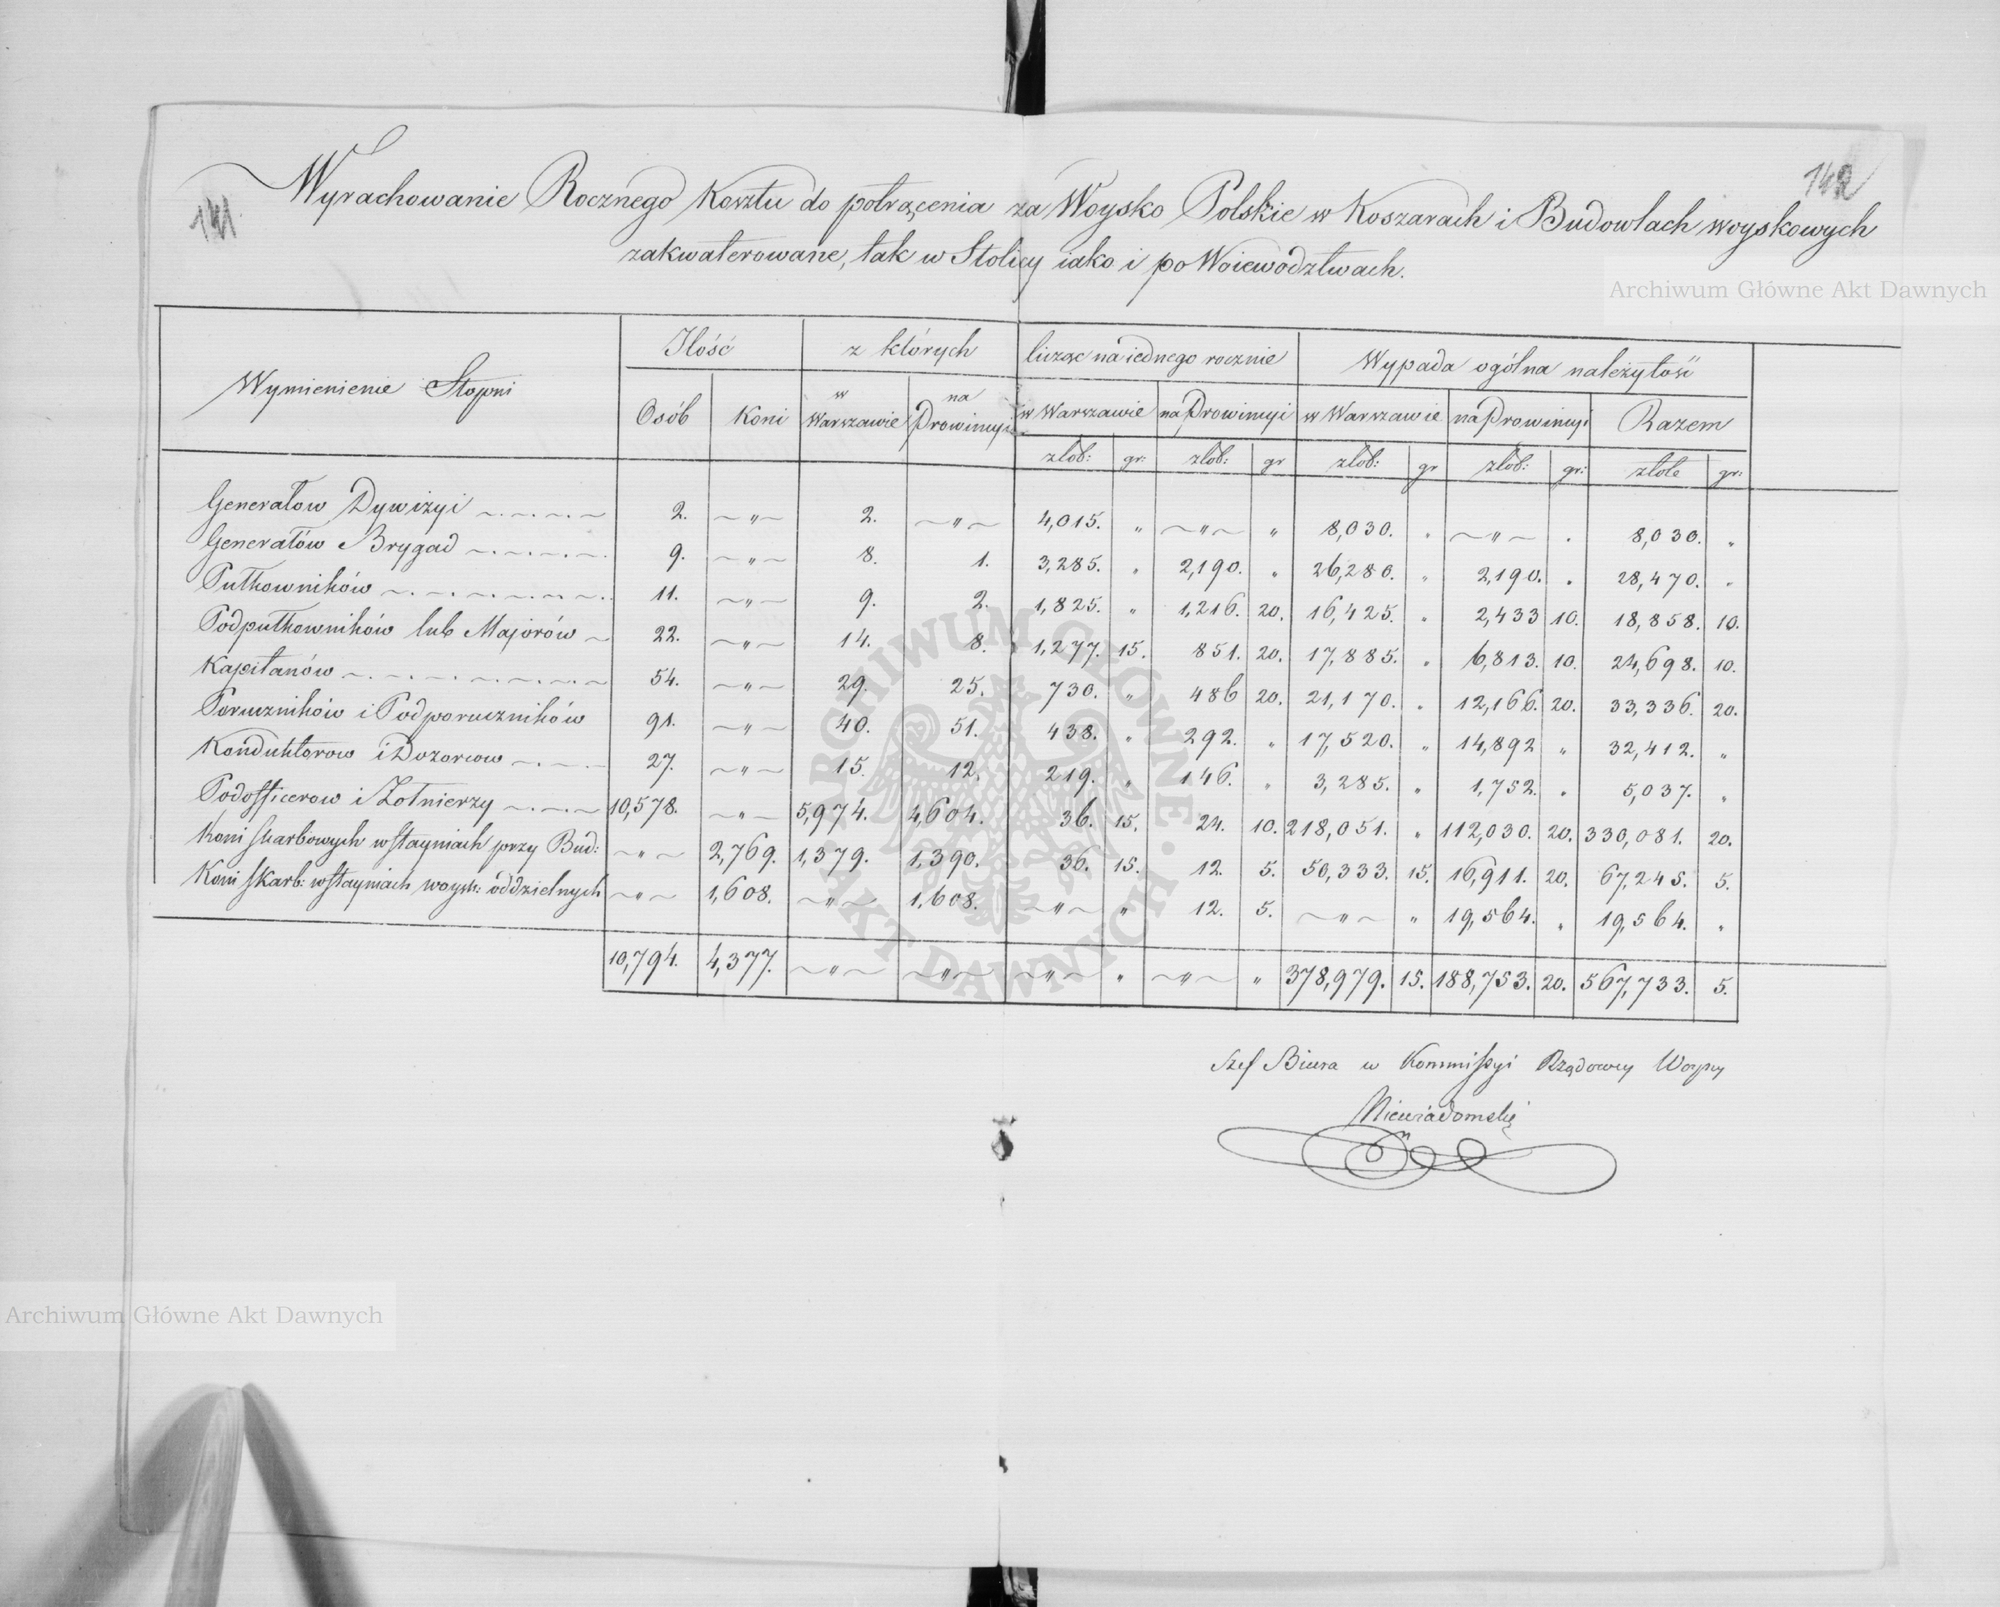 141.
142
Wyrachowanie Rocznego Kosztu do potrącenia za Woysko Polskie w Koszarach i Budowlach woyskowych
zakwaterowane, tak w Stolicy iako i po Woiewodztwach.
Archiwum Główne Akt Dawnych
Wymienienie Stopni | Ilość | z których | licząc na iednego rocznie | Wypada ogólna należytość
Osób | Koni | w Warszawie | na Prowincyi | w Warszawie | na Prowincyi | w Warszawie | na Prowincyi | Razem
złot: | gr: | złot: | gr | złot: | gr | złot: | gr: | złote | gr:
Generałow Dywizyi | 2. | " | 2. | " | 4,015. | " | " | " | 8,030. | " | " | " | 8,030. | "
Generałów Brygad | 9. | " | 8. | 1. | 3,285. | " | 2,190. | " | 26,280. | " | 2,190. | " | 28,470. | "
Pułkowników | 11. | " | 9. | 2. | 1,825. | " | 1,216. | 20. | 16,425. | " | 2,433 | 10. | 18,858. | 10.
Podpułkowników lub Majorów | 22. | " | 14. | 8. | 1,277. | 15. | 851. | 20. | 17,885. | " | 6,813. | 10. | 24,698. | 10.
Kapitanów | 54. | " | 29. | 25. | 730. | " | 486 | 20. | 21,170. | " | 12,166. | 20. | 33,336. | 20.
Poruczników i Podporuczników | 91. | " | 40. | 51. | 438. | " | 292. | " | 17,520. | " | 14,892 | " | 32,412. | "
Konduktorow i Dozorcow | 27. | " | 15. | 12. | 219. | " | 146. | " | 3,285. | " | 1,752. | " | 5,037. | "
Podofficerow i Żołnierzy | 10,578. | " | 5,974. | 4,604. | 36. | 15. | 24. | 10. | 218,051. | " | 112,030. | 20. | 330,081. | 20.
Koni skarbowych w stayniach przy Bud: | " | 2,769. | 1,379. | 1,390. | 36. | 15. | 12. | 5. | 50,333. | 15. | 16,911. | 20. | 67,245. | 5.
Koni skarb: w stayniach woysk: oddzielnych | " | 1,608. | " | 1,608. | " | " | 12. | 5. | " | " | 19,564. | " | 19,564. | "
10,794. | 4,377. | " | " | " | " | " | " | 378,979. | 15. | 188,753. | 20. | 567,733. | 5.
ARCHIWUM GŁÓWNE AKT DAWNYCH
Szef Biura w Kommissyi Rządowey Woyny
Niewiadomski
Archiwum Główne Akt Dawnych